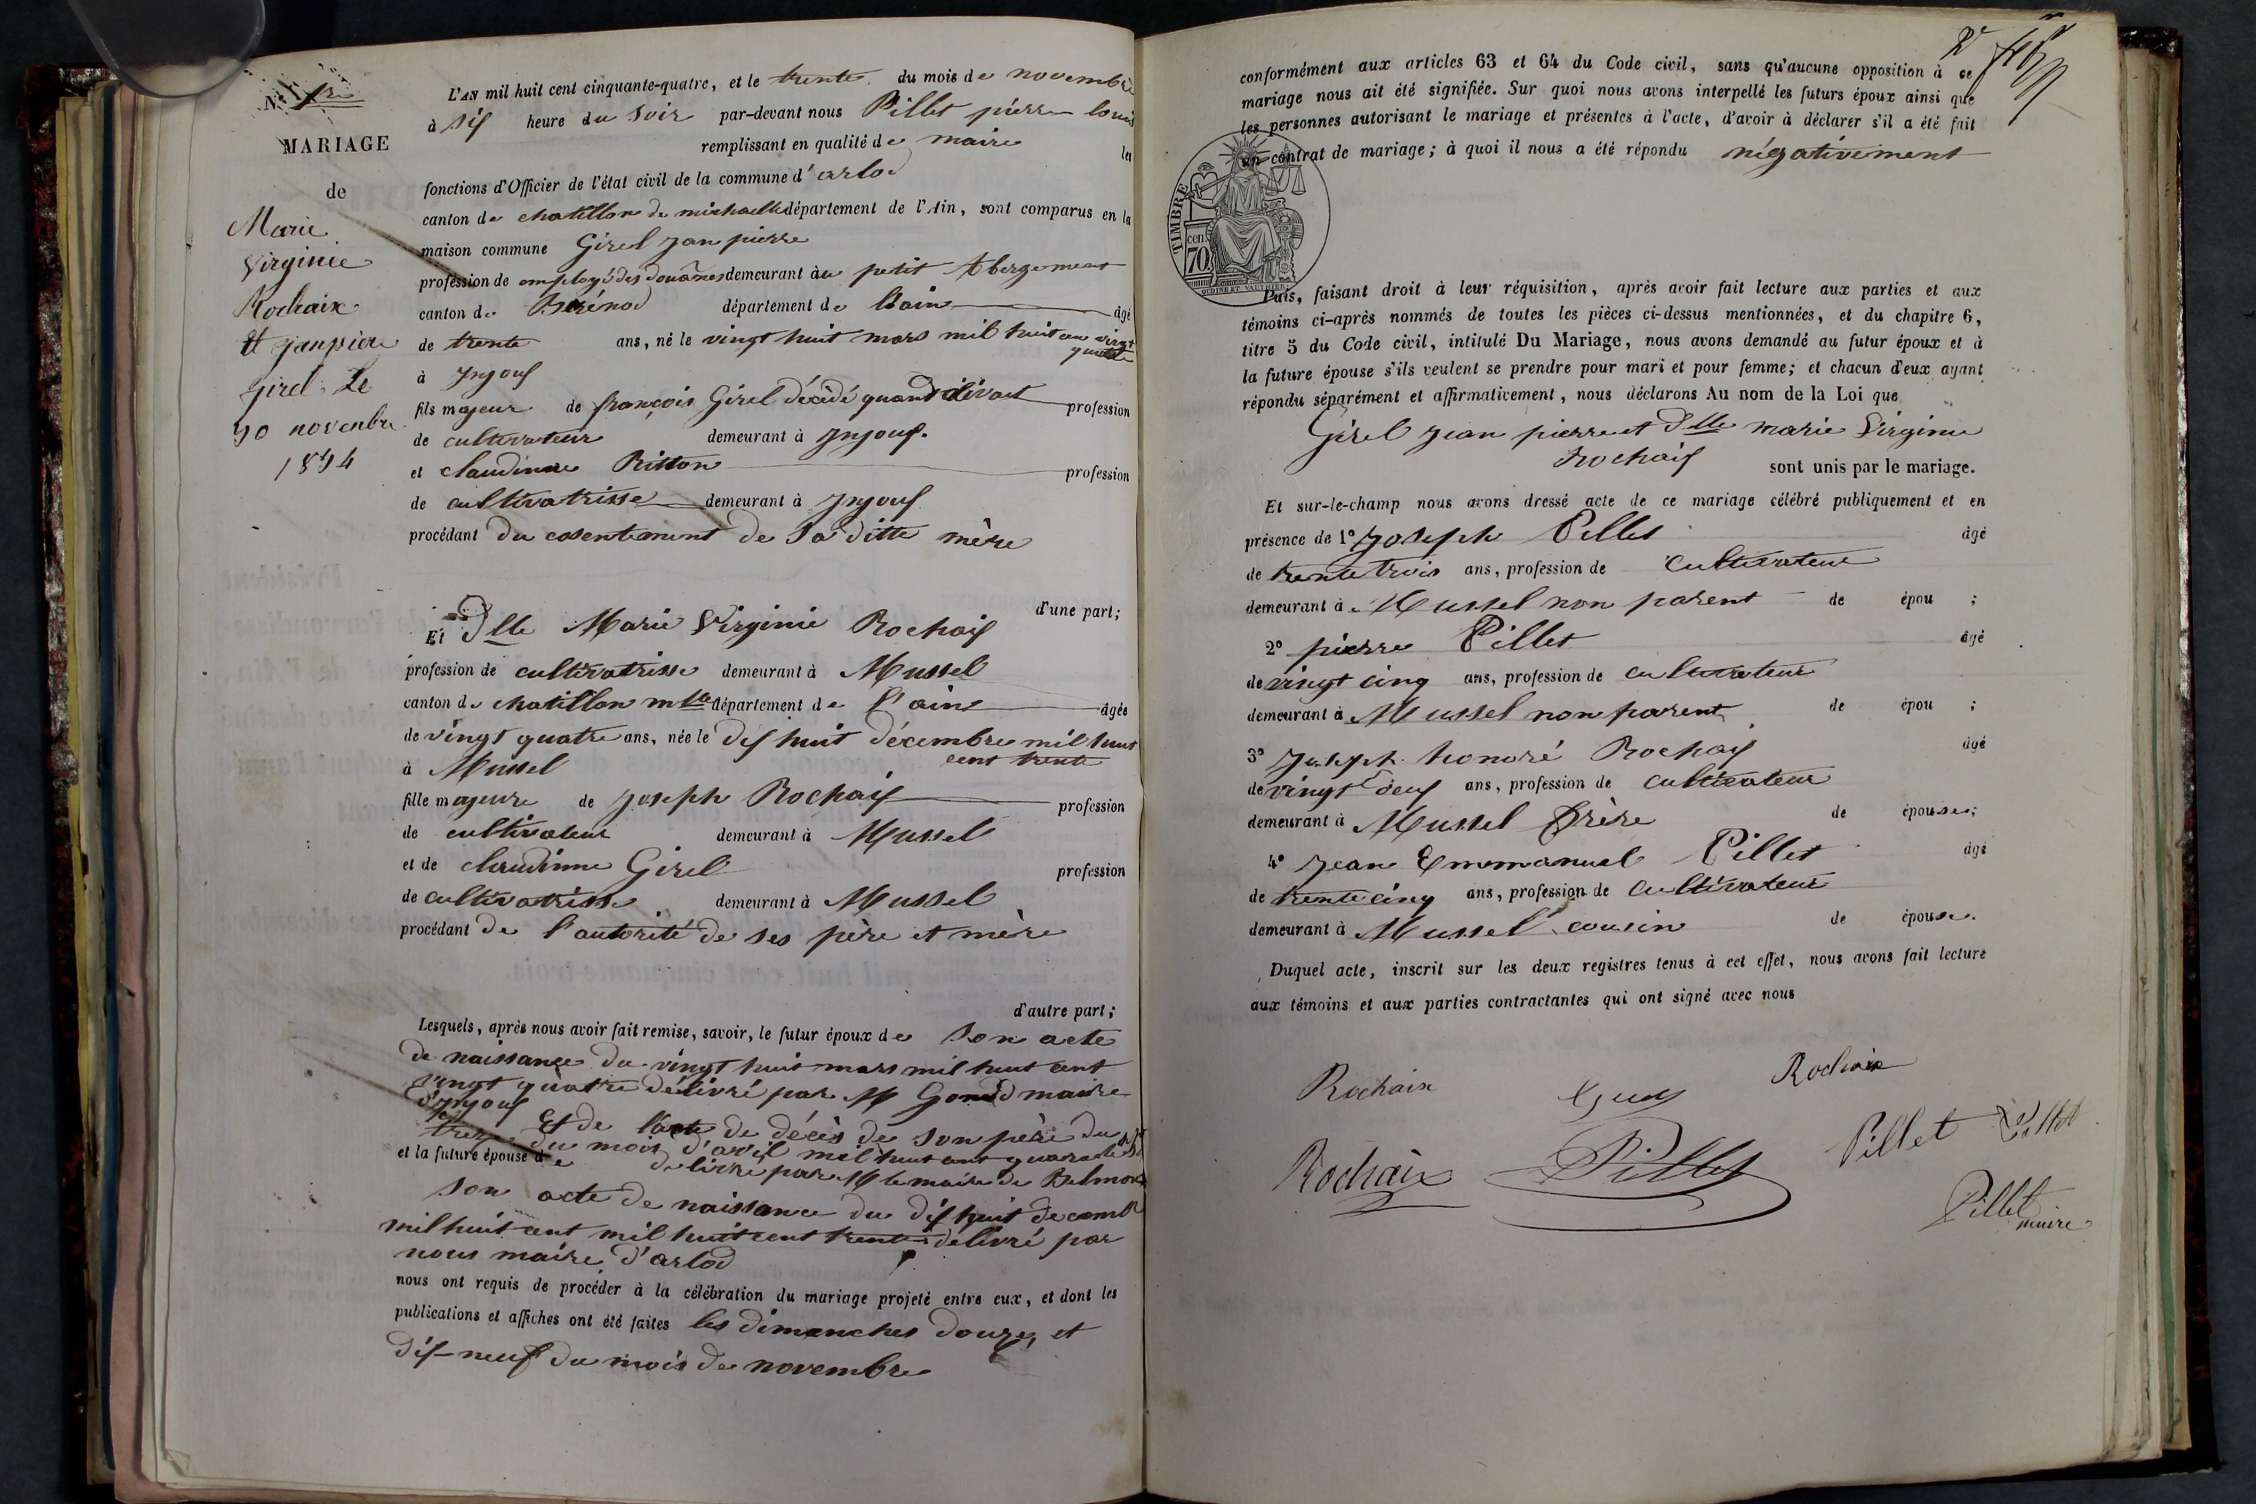 N° 1re
MARIAGE
de
Marie
Virginie
Rochaix
et janpierre
girel Le
30 novenbre
1854
L'AN mil huit cent cinquante-quatre, et le trente du mois de novembre
à six heure du soir par-devant nous Pillet pierre louis
remplissant en qualité de maire les
fonctions d'Officier de l'état civil de la commune d'arlod
canton de chatillon de michaille département de l'Ain, sont comparus en la
maison commune Girel jan pierre
profession de employé des douânes demeurant àu petit Abergement
canton de Brénod département de l'ain âgé
de trente ans, né le vingt huit mars mil huit cen vingt
quatre
à Injoux
fils majeur de françois Girel décédé quand vivait profession
de cultivateur demeurant à Injoux.
et claudinne Ritton profession
de cultivatrisse demeurant à Injoux
procédant du cosentement de sa ditte mère
d'une part;
Et Dlle Marie Virginie Rochaix
profession de cultivatrisse demeurant à Mussel
canton de chatillon mlle département de l'ain âgée
de vingt quatre ans, née le dix huit décembre mil huit
cent trente
à Mussel
fille majeure de joseph Rochaix profession
de cultivateur demeurant à Mussel
et de claudinne Girel profession
de cultivatrisse demeurant à Mussel
procédant de l'autorité de ses père et mère
d'autre part;
Lesquels, après nous avoir fait remise, savoir, le futur époux de son acte
de naissance du vingt huit mars mil huit cent
vingt quatre délivré par M Gonod maire
d'Injoux Et de l'acte de décès de son père du
treize du mois d'avril mil huit cent quarante
et la future épouse de délivré par M le maire de Belmont
son acte de naissance du dix huit decemb
mil huit cent mil huit cent trente délivré par
nous maire d'arlod
nous ont requis de procéder à la célébration du mariage projeté entre eux, et dont les
publications et affiches ont été faites les dimanches douze, et
dix-neuf du mois de novembre
conformément aux articles 63 et 64 du Code civil, sans qu'aucune opposition à ce
mariage nous ait été signifiée. Sur quoi nous avons interpellé les futurs époux ainsi que
les personnes autorisant le mariage et présentes à l'acte, d'avoir à déclarer s'il a été fait
un contrat de mariage; à quoi il nous a été répondu négativement
TIMBRE
cen.
70
Puis, faisant droit à leur réquisition, après avoir fait lecture aux parties et aux
témoins ci-après nommés de toutes les pièces ci-dessus mentionnées, et du chapitre 6,
titre 5 du Code civil, intitulé Du Mariage, nous avons demandé au futur époux et à
la future épouse s'ils veulent se prendre pour mari et pour femme; et chacun d'eux ayant
répondu séparément et affirmativement, nous déclarons Au nom de la Loi que
Girel jean pierre et Dlle marie Virginie
Rochaix sont unis par le mariage.
Et sur-le-champ nous avons dressé acte de ce mariage célébré publiquement et en
présence de 1° joseph Pillet âgé
de trente trois ans, profession de cultivateur
demeurant à Mussel non parent de épou ;
2° pierre Pillet âgé
de vingt cinq ans, profession de cultivateur
demeurant à Mussel non parent de épou ;
3° joseph honoré Rochaix âgé
de vingt deux ans, profession de cultivateur
demeurant à Mussel frère de épouse;
4° jean Emmanuel Pillet âgé
de trente cinq ans, profession de cultivateur
demeurant à Mussel cousin de épouse.
Duquel acte, inscrit sur les deux registres tenus à cet effet, nous avons fait lecture
aux témoins et aux parties contractantes qui ont signé avec nous
Rochaix Rochaix
Rochaix Pillet Pillet Pillet
Pillet
maire